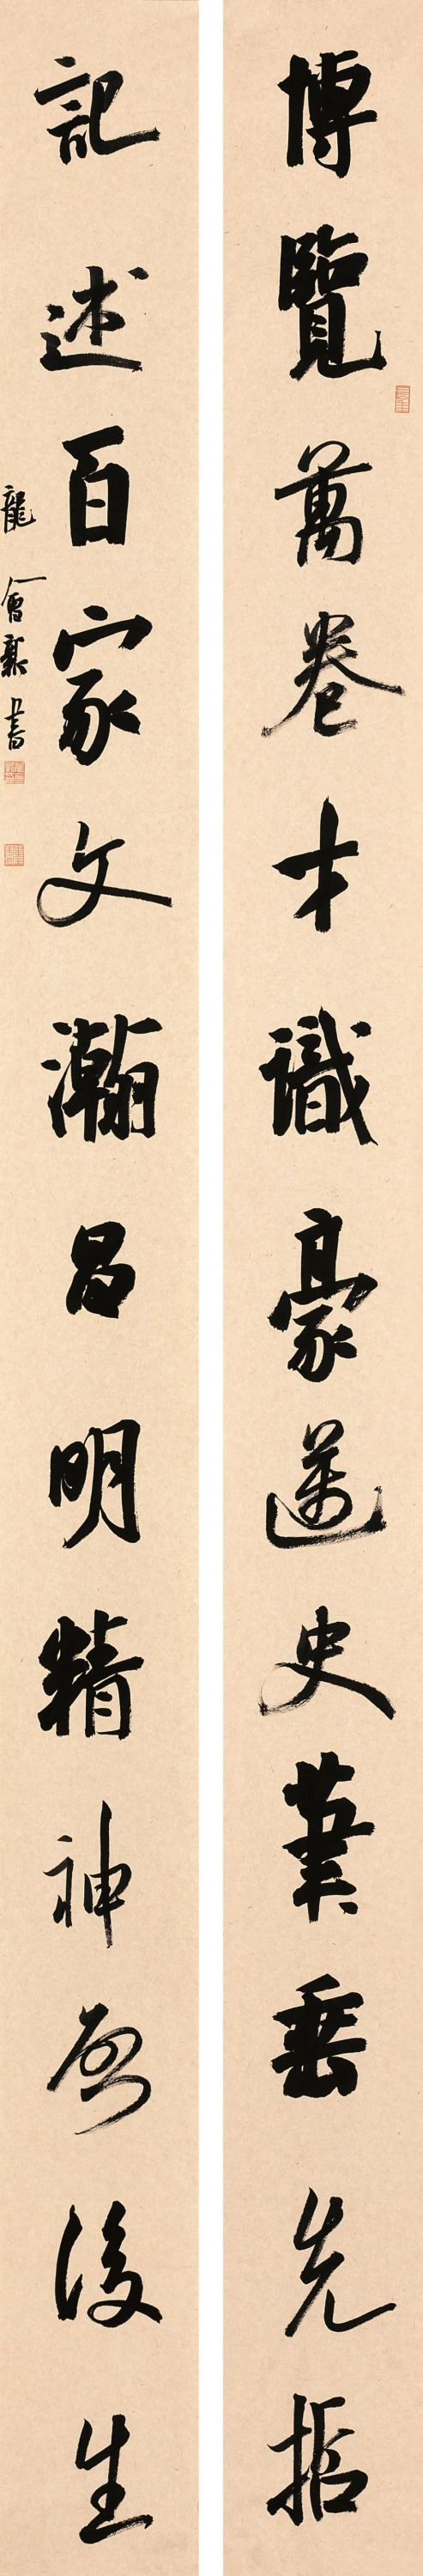 博覽萬卷才識豪邁史業垂先哲
記述百家文瀚昌明精神啟後生
龍會書